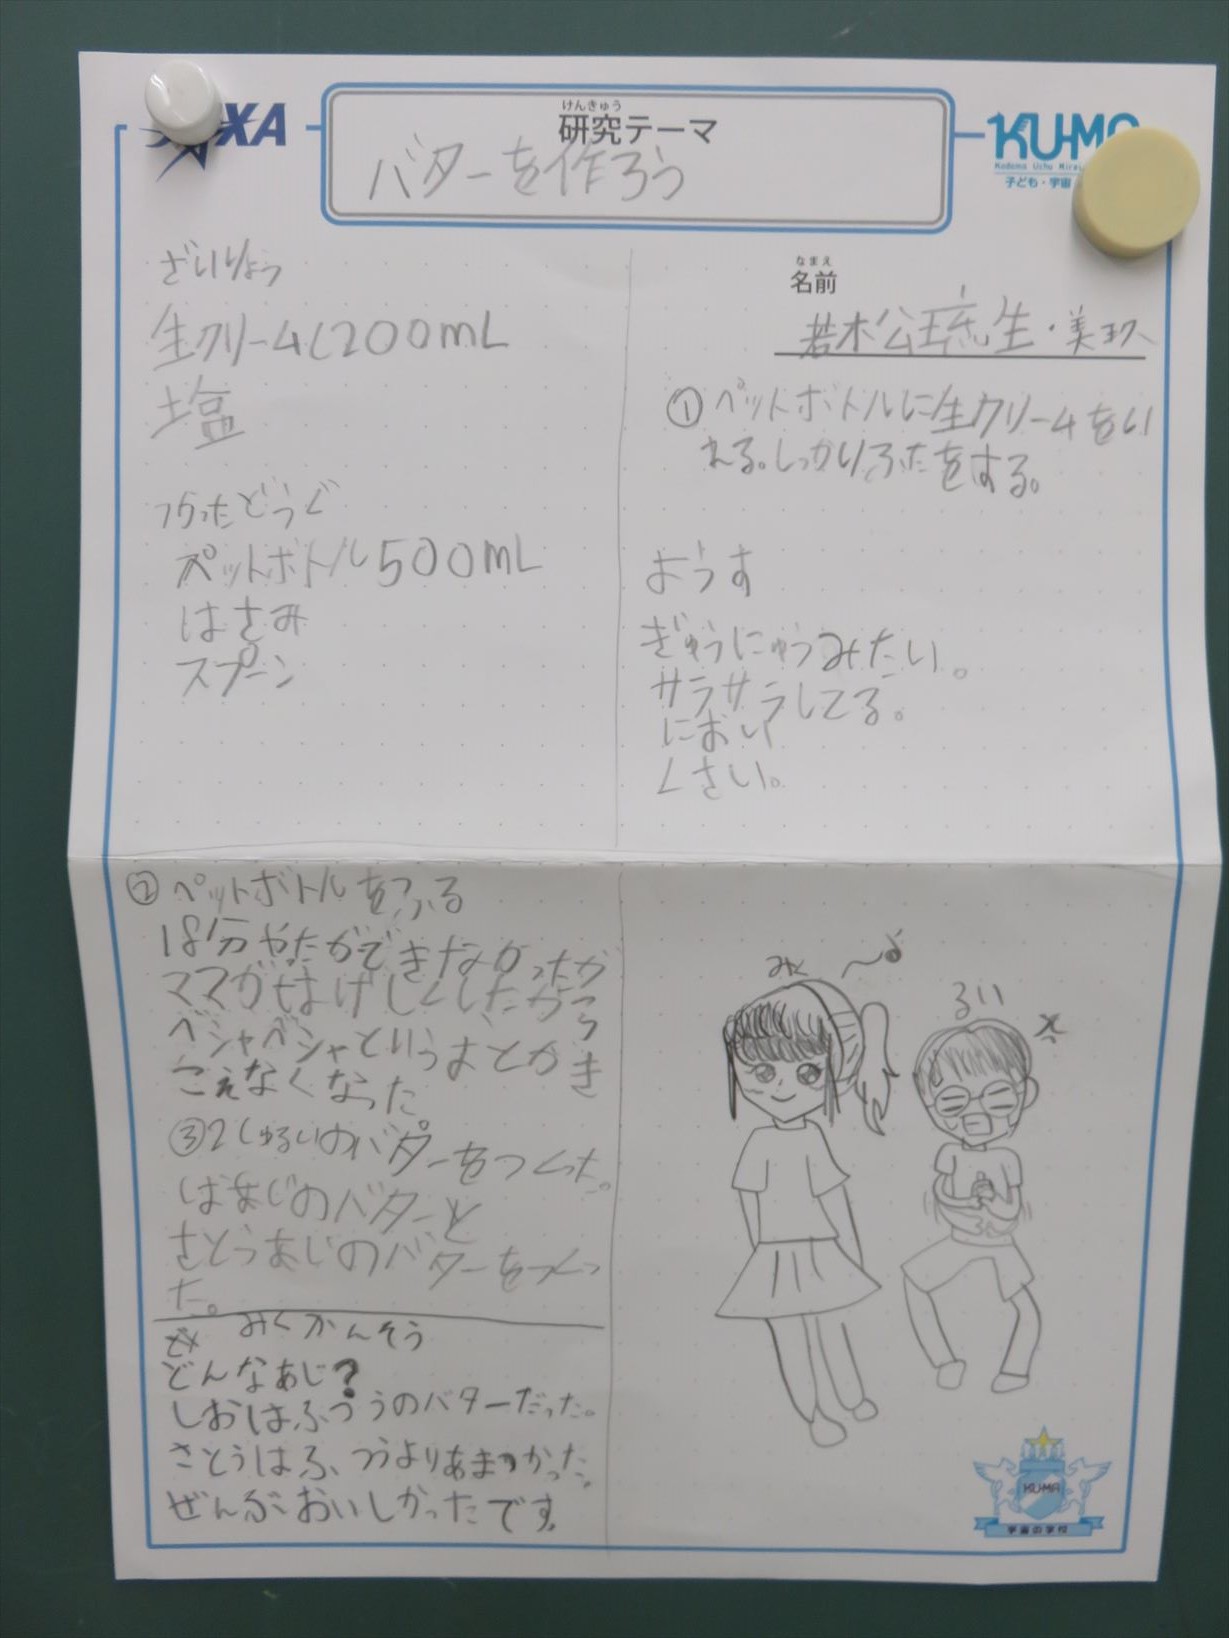 XA
けんきゅう
研究テーマ
バターを作ろう
KU-MA
Kodomo Uchu Mirai
子ども・宇宙
ざいりょう
生クリーム200mL
塩
つかったどうぐ
ペットボトル500mL
はさみ
スプーン
なまえ
名前
生・美玖
①ペットボトルに生クリームをい
れる。しっかりふたをする。
ようす
ぎゅうにゅうみたい。
サラサラしてる。
におい
くさい。
②ペットボトルをふる
18分やったができなかったが
ママがはげしくしたから
ベシャベシャというおとがき
こえなくなった
③2しゅるいのバターをつくった。
しおあじのバターと
さとうあじのバターをつくっ
た。
みくかんそう
どんなあじ?
しおはふつうのバターだった。
さとうはふつうよりあまかった。
ぜんぶおいしかったです。
みく
るい
KU-MA
宇宙の学校